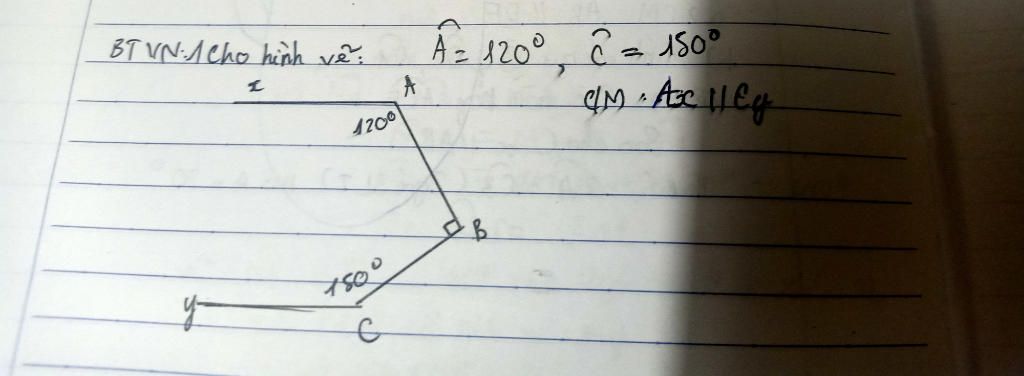 BTVN:1 Cho hình vẽ: Â = 120°, Ĉ = 150°
CM : Ax // Cy
x A
120°
B
150°
y
C